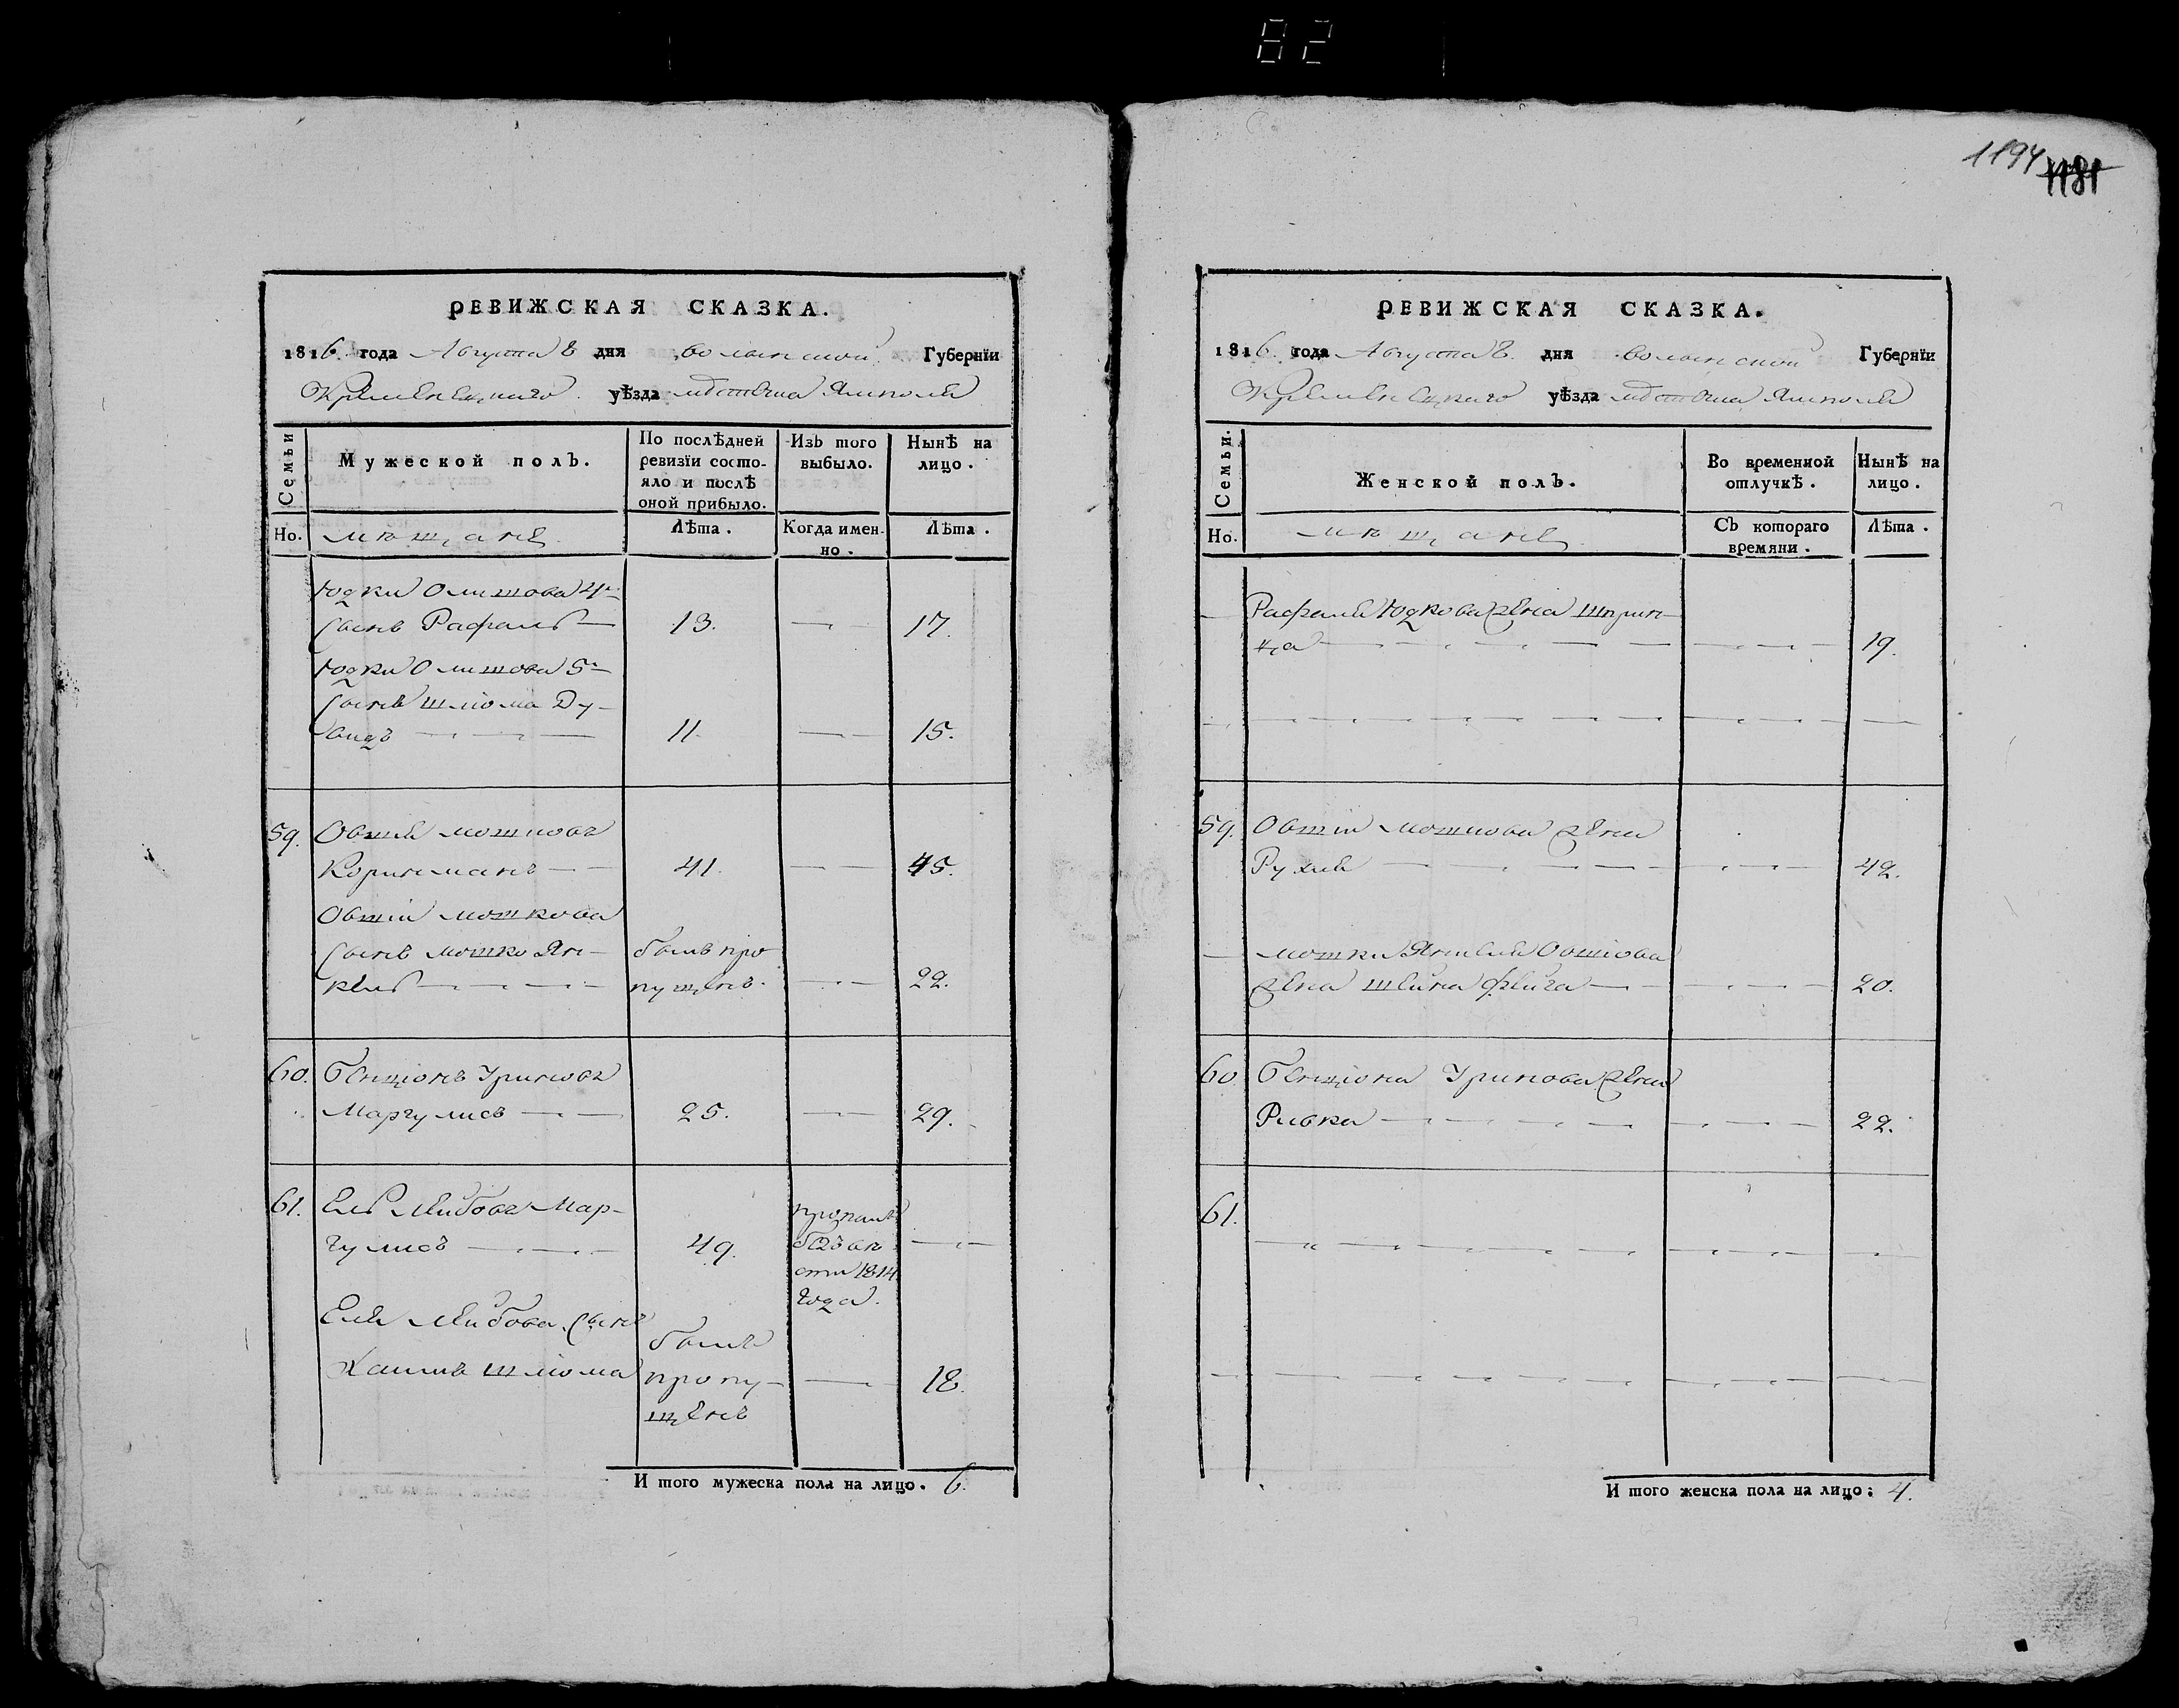 82
1194 1181
РЕВИЖСКАЯ СКАЗКА.
1816. года Августа 8 дня волынской Губернїи
Кременецкаго уѣзда мѣстечка Ямполя
Семьи
Мужеской полъ.
По послѣдней ревизїи состо-
яло и послѣ
оной прибыло.
Изъ того
выбыло.
Нынѣ на
лицо.
Но. мѣщане
Лѣта.
Когда имен-
но.
Лѣта.
Юдки Ошмова 4й
сынъ Рафаль 13. 17.
Юдки 5й
сынъ шлїома Ду-
видъ 11 15.
59. Овшїй мошковъ
Коринманъ 41. 45.
Овшїя мошкова
сынъ мошко Ян-
кель былъ про
пущенъ. 22.
60. бенцїонъ Уриновъ
Маргулисъ 25. 29.
61. Ель Лейбовъ Мар-
гулисъ 49.
пропалъ
безъвѣ
сти 1814
года.
Еля Лейбова сынъ
Хаимъ шлїома
былъ
пропу-
щенъ
18.
И того мужеска пола на лицо. 6.
РЕВИЖСКАЯ СКАЗКА.
1816. года Августа 8. дня волынской Губернїи
Кременецкаго уѣзда мѣстечка Ямполя
Семьи.
Женской полъ.
Во временной
отлучкѣ.
Нынѣ на
лицо.
Но. мѣщане
Съ котораго
времяни.
Лѣта.
Рафаля Юдкова жена шприн-
ца 19.
59. Овшїя мошкова жена
Рухля 42.
мошки Янкеля Овшїова
жена шейна фейга 20.
60 бенцїона Уринова жена
Ривка 22.
61.
И того женска пола на лицо: 4.